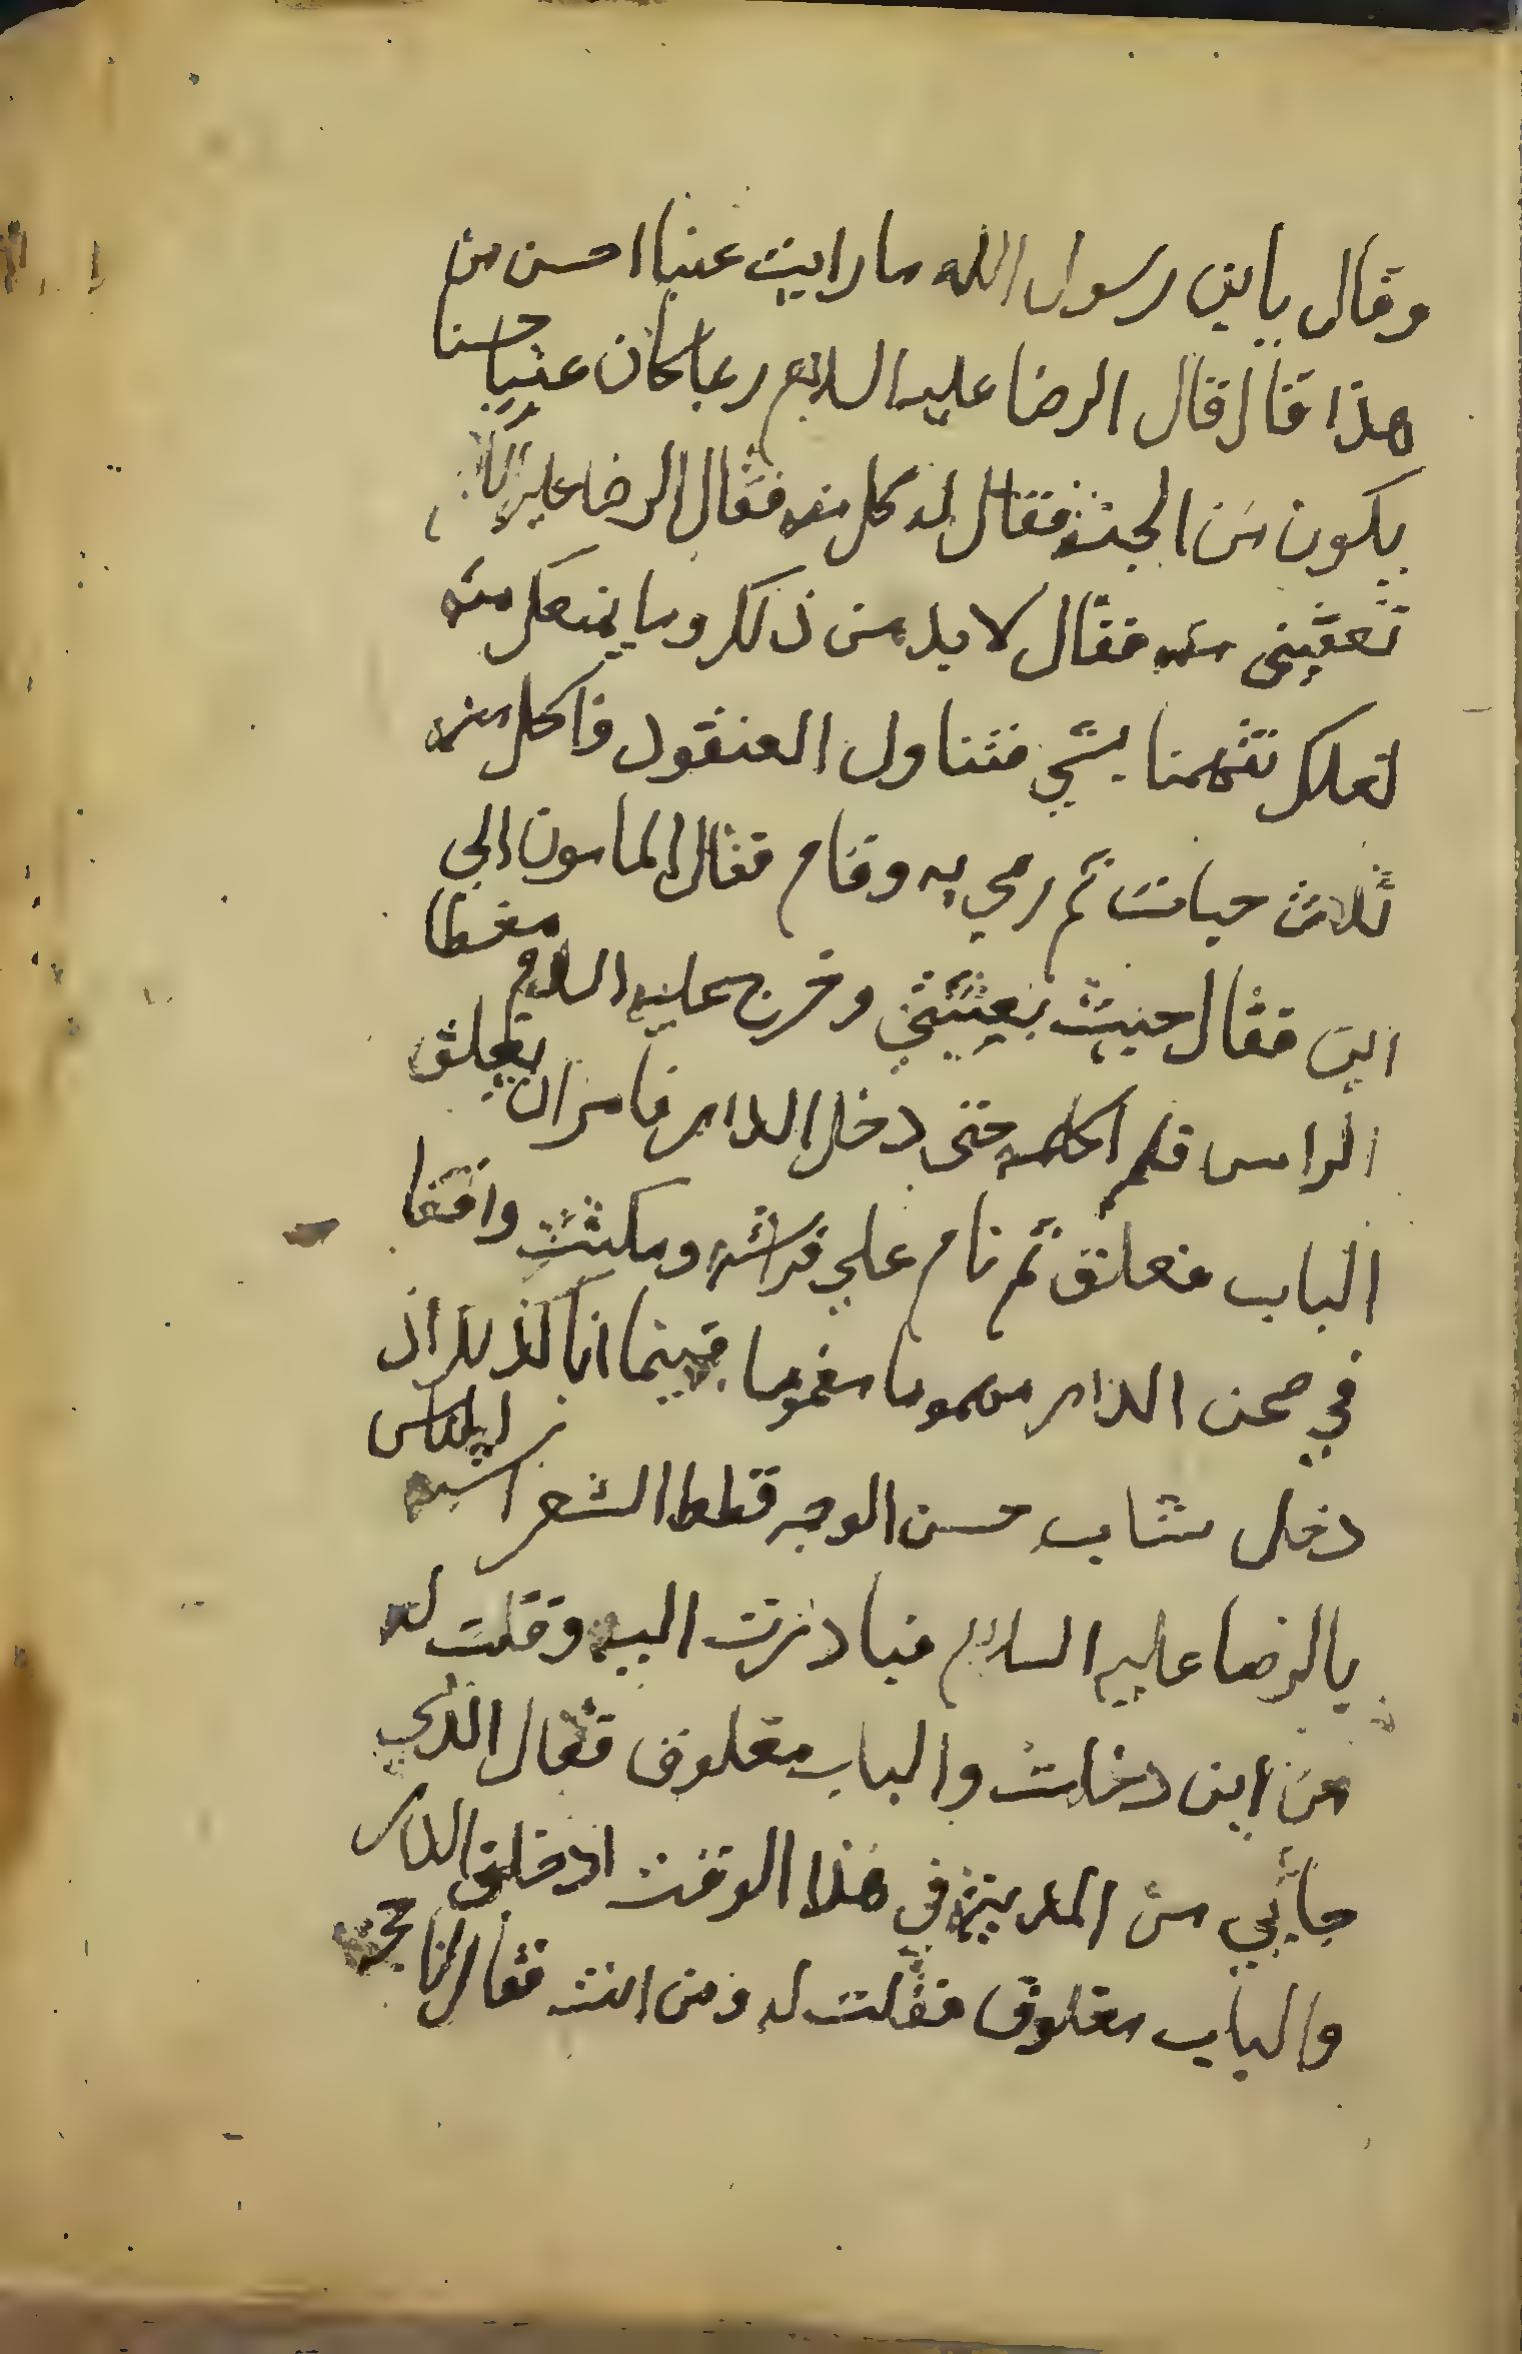 وقال يابن رسول الله ما رايت عنبا احسن من
هذا قال فقال الرضا عليه السلام ربما كان عنبا حسنا
يكون من الجنة فقال له كل منه فقال الرضا عليه السلام
تعفيني منه فقال لا بد من ذلك وما يمنعك منه
لعلك تتهمنا بشي فتناول العنقود فاكل منه
ثلاث حبات ثم رمي به وقام فقال المامون الي
اين فقال حيث بعثتني وخرج عليه السلام مغطا
الراس فلم اكلمه حتى دخل الدار فامر ان يغلق
الباب فغلق ثم نام علي فراشه ومكثت واقفا
في صحن الدار مهموما مغموما فبينما انا كذلك اذ
دخل شاب حسن الوجه قطط الشعر اشبه الناس
بالرضا عليه السلام فبادرت اليه وقلت له
من اين دخلت والباب مغلوق فقال الذي
جاني من المدينة في هذا الوقت ادخلني الدار
والباب مغلوق فقلت له ومن انت فقال انا